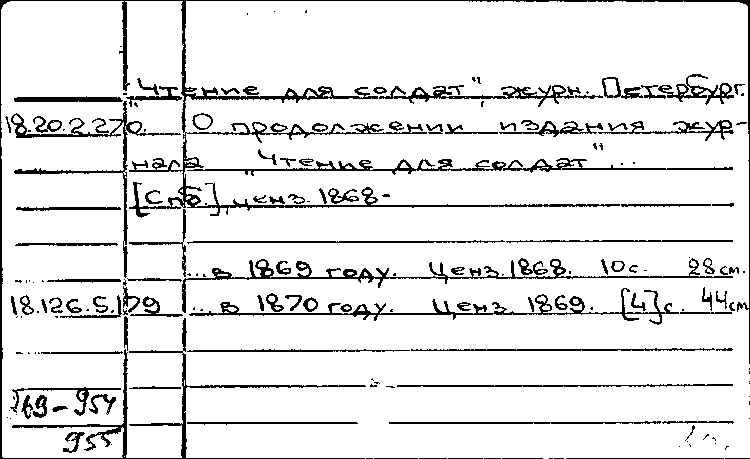 "Чтение для солдат", журн. Петербург.
18.20.2.270. О продолжении издания жур-
нала "Чтение для солдат"...
[Спб], ценз. 1868-
...в 1869 году. Ценз. 1868. 10с. 28см.
18.126.5.179 ...в 1870 году. Ценз. 1869. [4]с. 44см
69-954
955